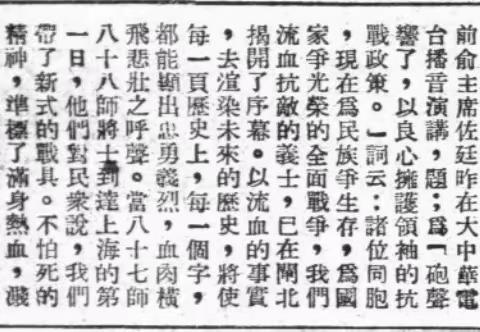 前俞主席佐廷昨在大中華電
台播音演講，題；爲「砲聲
響了，以良心擁護領袖的抗
戰政策。」詞云：諸位同胞
，現在爲民族爭生存，爲國
家爭光榮的全面戰爭，我們
流血抗敵的義士，已在閘北
揭開了序幕。以流血的事實
，去渲染未來的歷史，將使
每一頁歷史上，每一個字，
都能顯出忠勇義烈，血肉橫
飛悲壯之呼聲。當八十七師
八十八師將士到達上海的第
一日，他們對民衆說，我們
帶了新式的戰具。不怕死的
精神，準備了滿身熱血，濺